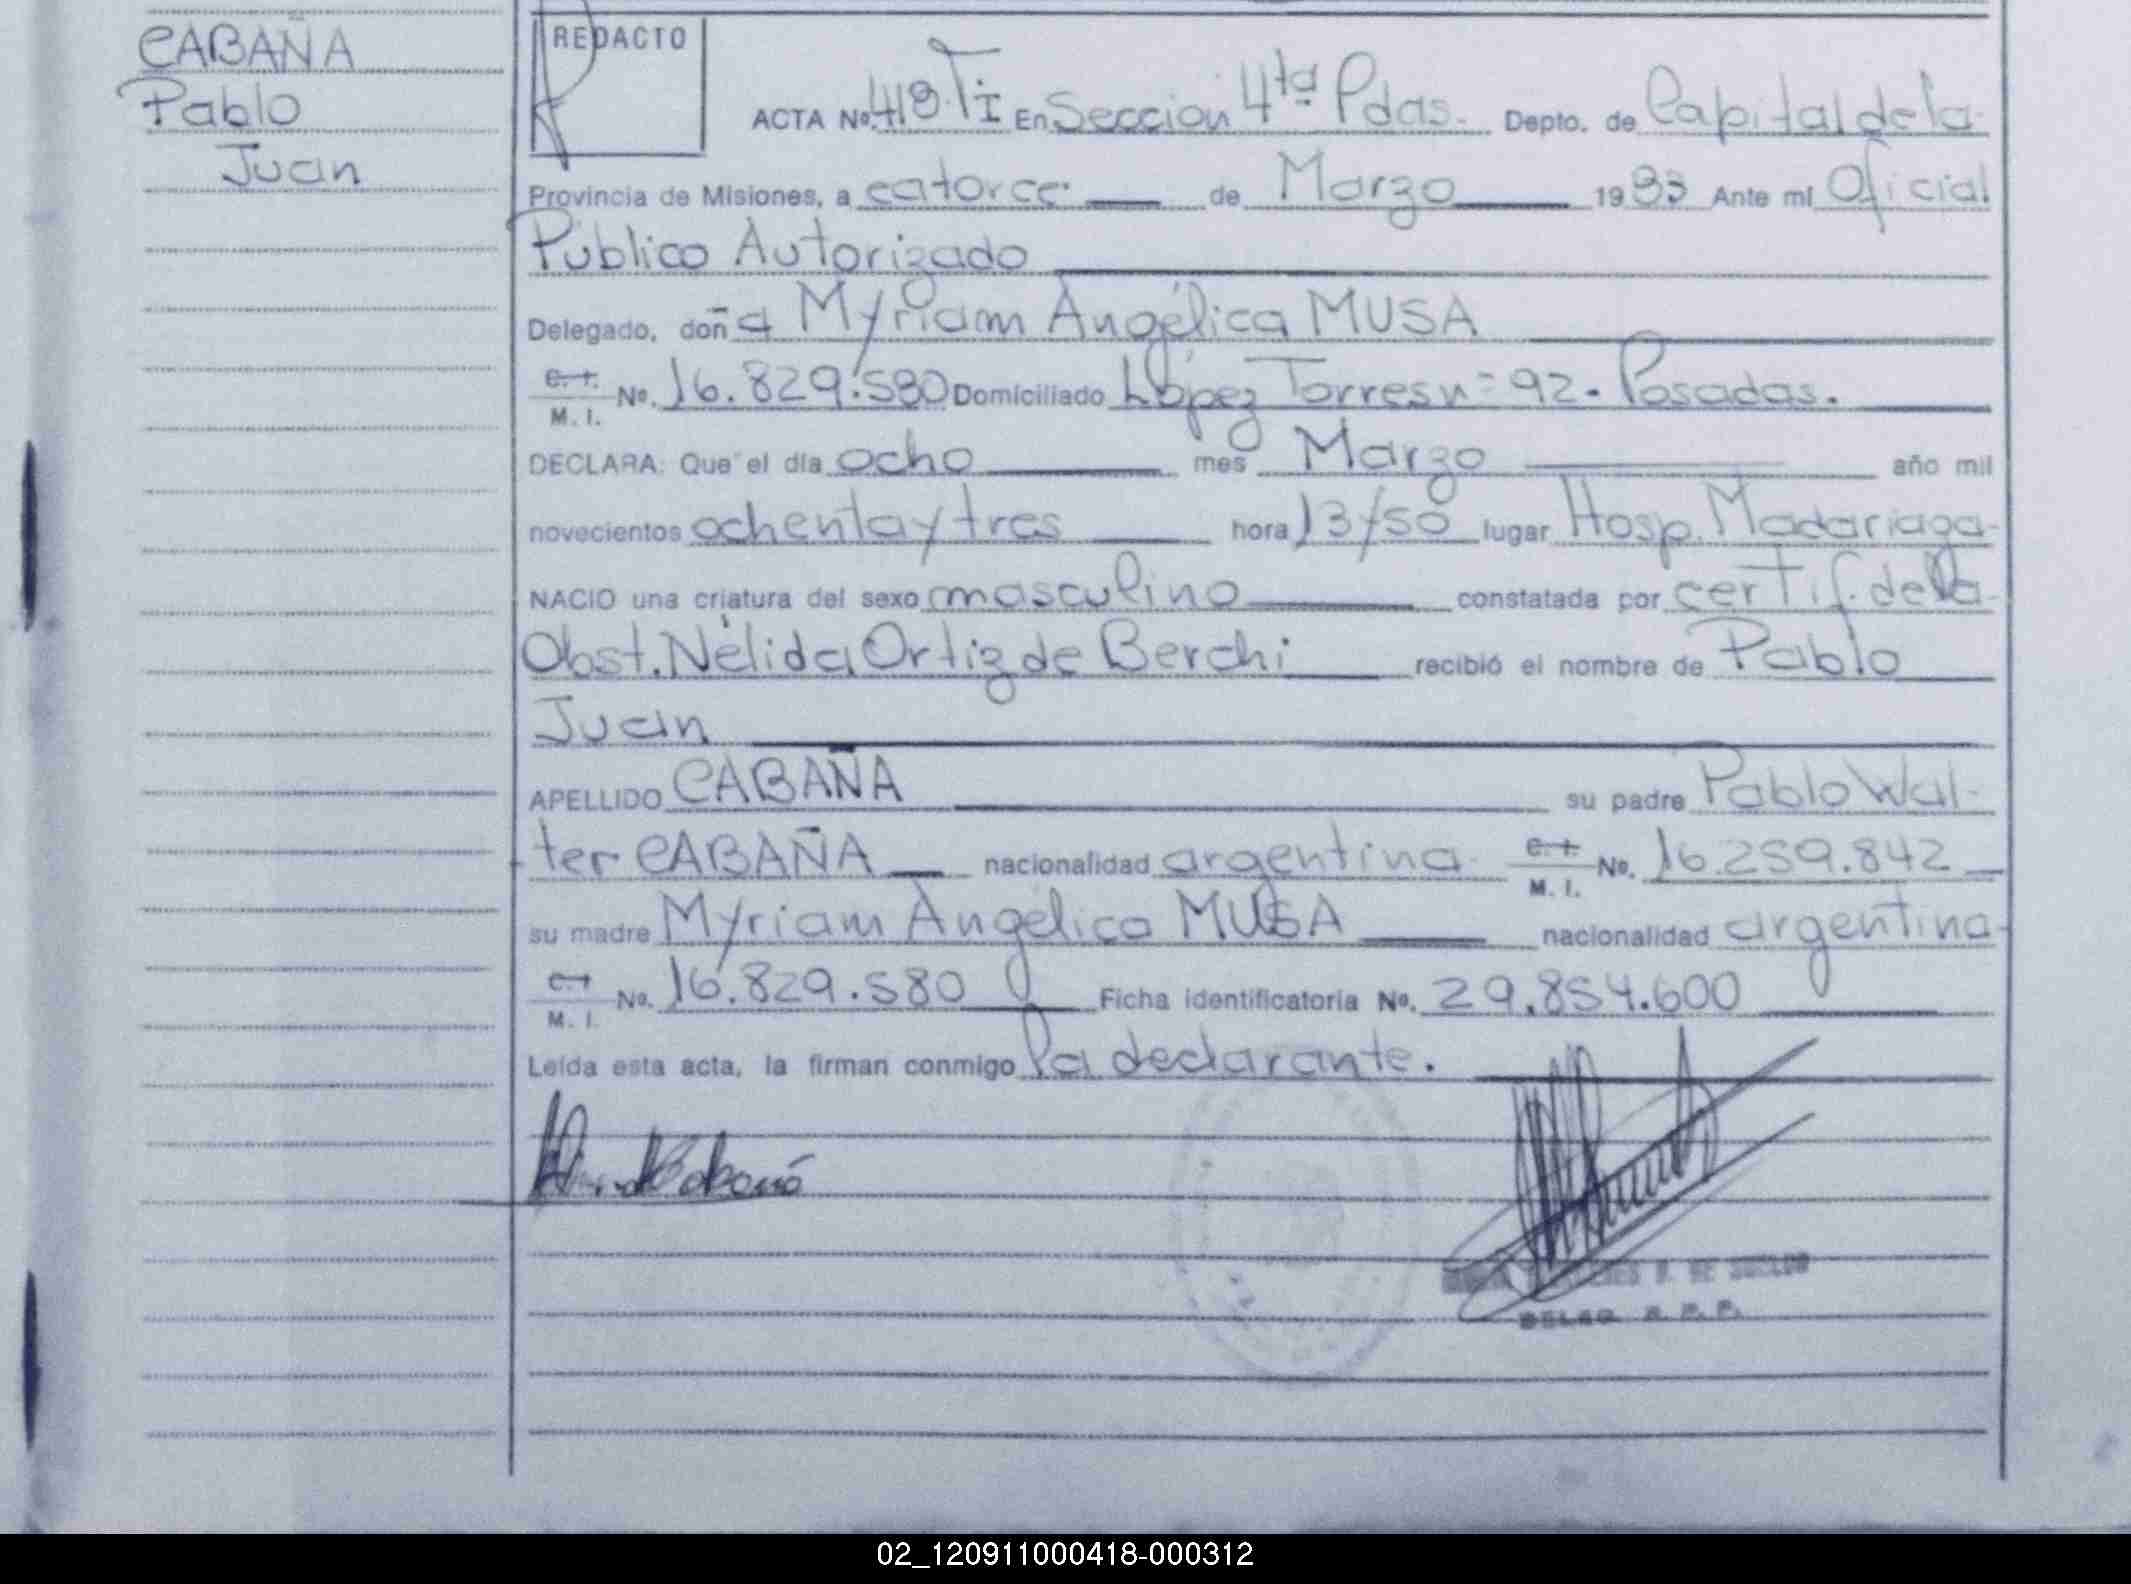 CABAÑA
Pablo
Juan
REDACTO
ACTA No. 418 TI En Sección 4ta Pdas. Depto. de Capital de la
Provincia de Misiones, a catorce de Marzo 1983 Ante mi Oficial
Público Autorizado
Delegado, doña Myriam Angélica MUSA
C. I.
M. I. No. 16.829.580 Domiciliado López Torres nº 92. Posadas.
DECLARA: Que el día ocho mes Marzo año mil
novecientos ochenta y tres hora 13/50 lugar Hosp. Madariaga
NACIO una criatura del sexo masculino constatada por certif. de la
Obst. Nélida Ortiz de Berchi recibió el nombre de Pablo
Juan
APELLIDO CABAÑA su padre Pablo Wal-
ter CABAÑA nacionalidad argentina C. I.
M. I. No. 16.259.842
su madre Myriam Angélica MUSA nacionalidad argentina
C. I.
M. I. No. 16.829.580 Ficha identificatoria No. 29.854.600
Leída esta acta, la firman conmigo la declarante.
DE SUELDO
DELEG. R. P. P.
02_120911000418-000312